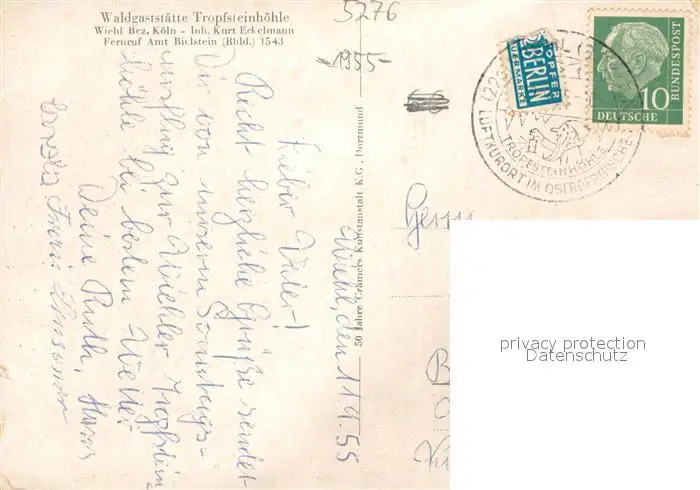 Waldgaststätte Tropfsteinhöhle
Wiehl Bez. Köln - Inh. Kurt Eckelmann
Fernruf Amt Bielstein (Bhld.) 1543
5276
-1955-
NOTOPFER
2 BERLIN
STEUERMARKE
10
DEUTSCHE
BUNDESPOST
TROPFSTEINHÖHLE
LUFTKURORT IM OBERBERGISCHEN
50 Jahre Crämers Kunstanstalt K.G., Dortmund
Wiehl, den 11.9.55
Lieber Vater!
Recht herzliche Grüße sendet
Dir von unserm Sonntags-
ausflug zur Wiehler Tropfstein
höhle bei bestem Wetter
Deine Ruth, Hans
Herrn
privacy protection
Datenschutz